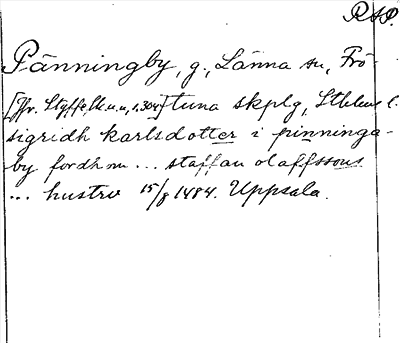 RAP.
Pänningby, g., Länna sn, Frö-
[Jfr. Styffe, U.u.u, s.304] tuna skplg, Sthlms l.
sigridh karlsdotter i pinninga-
by fordhom ... staffan olaffssons
... hustrv 15/8 1484. Uppsala.